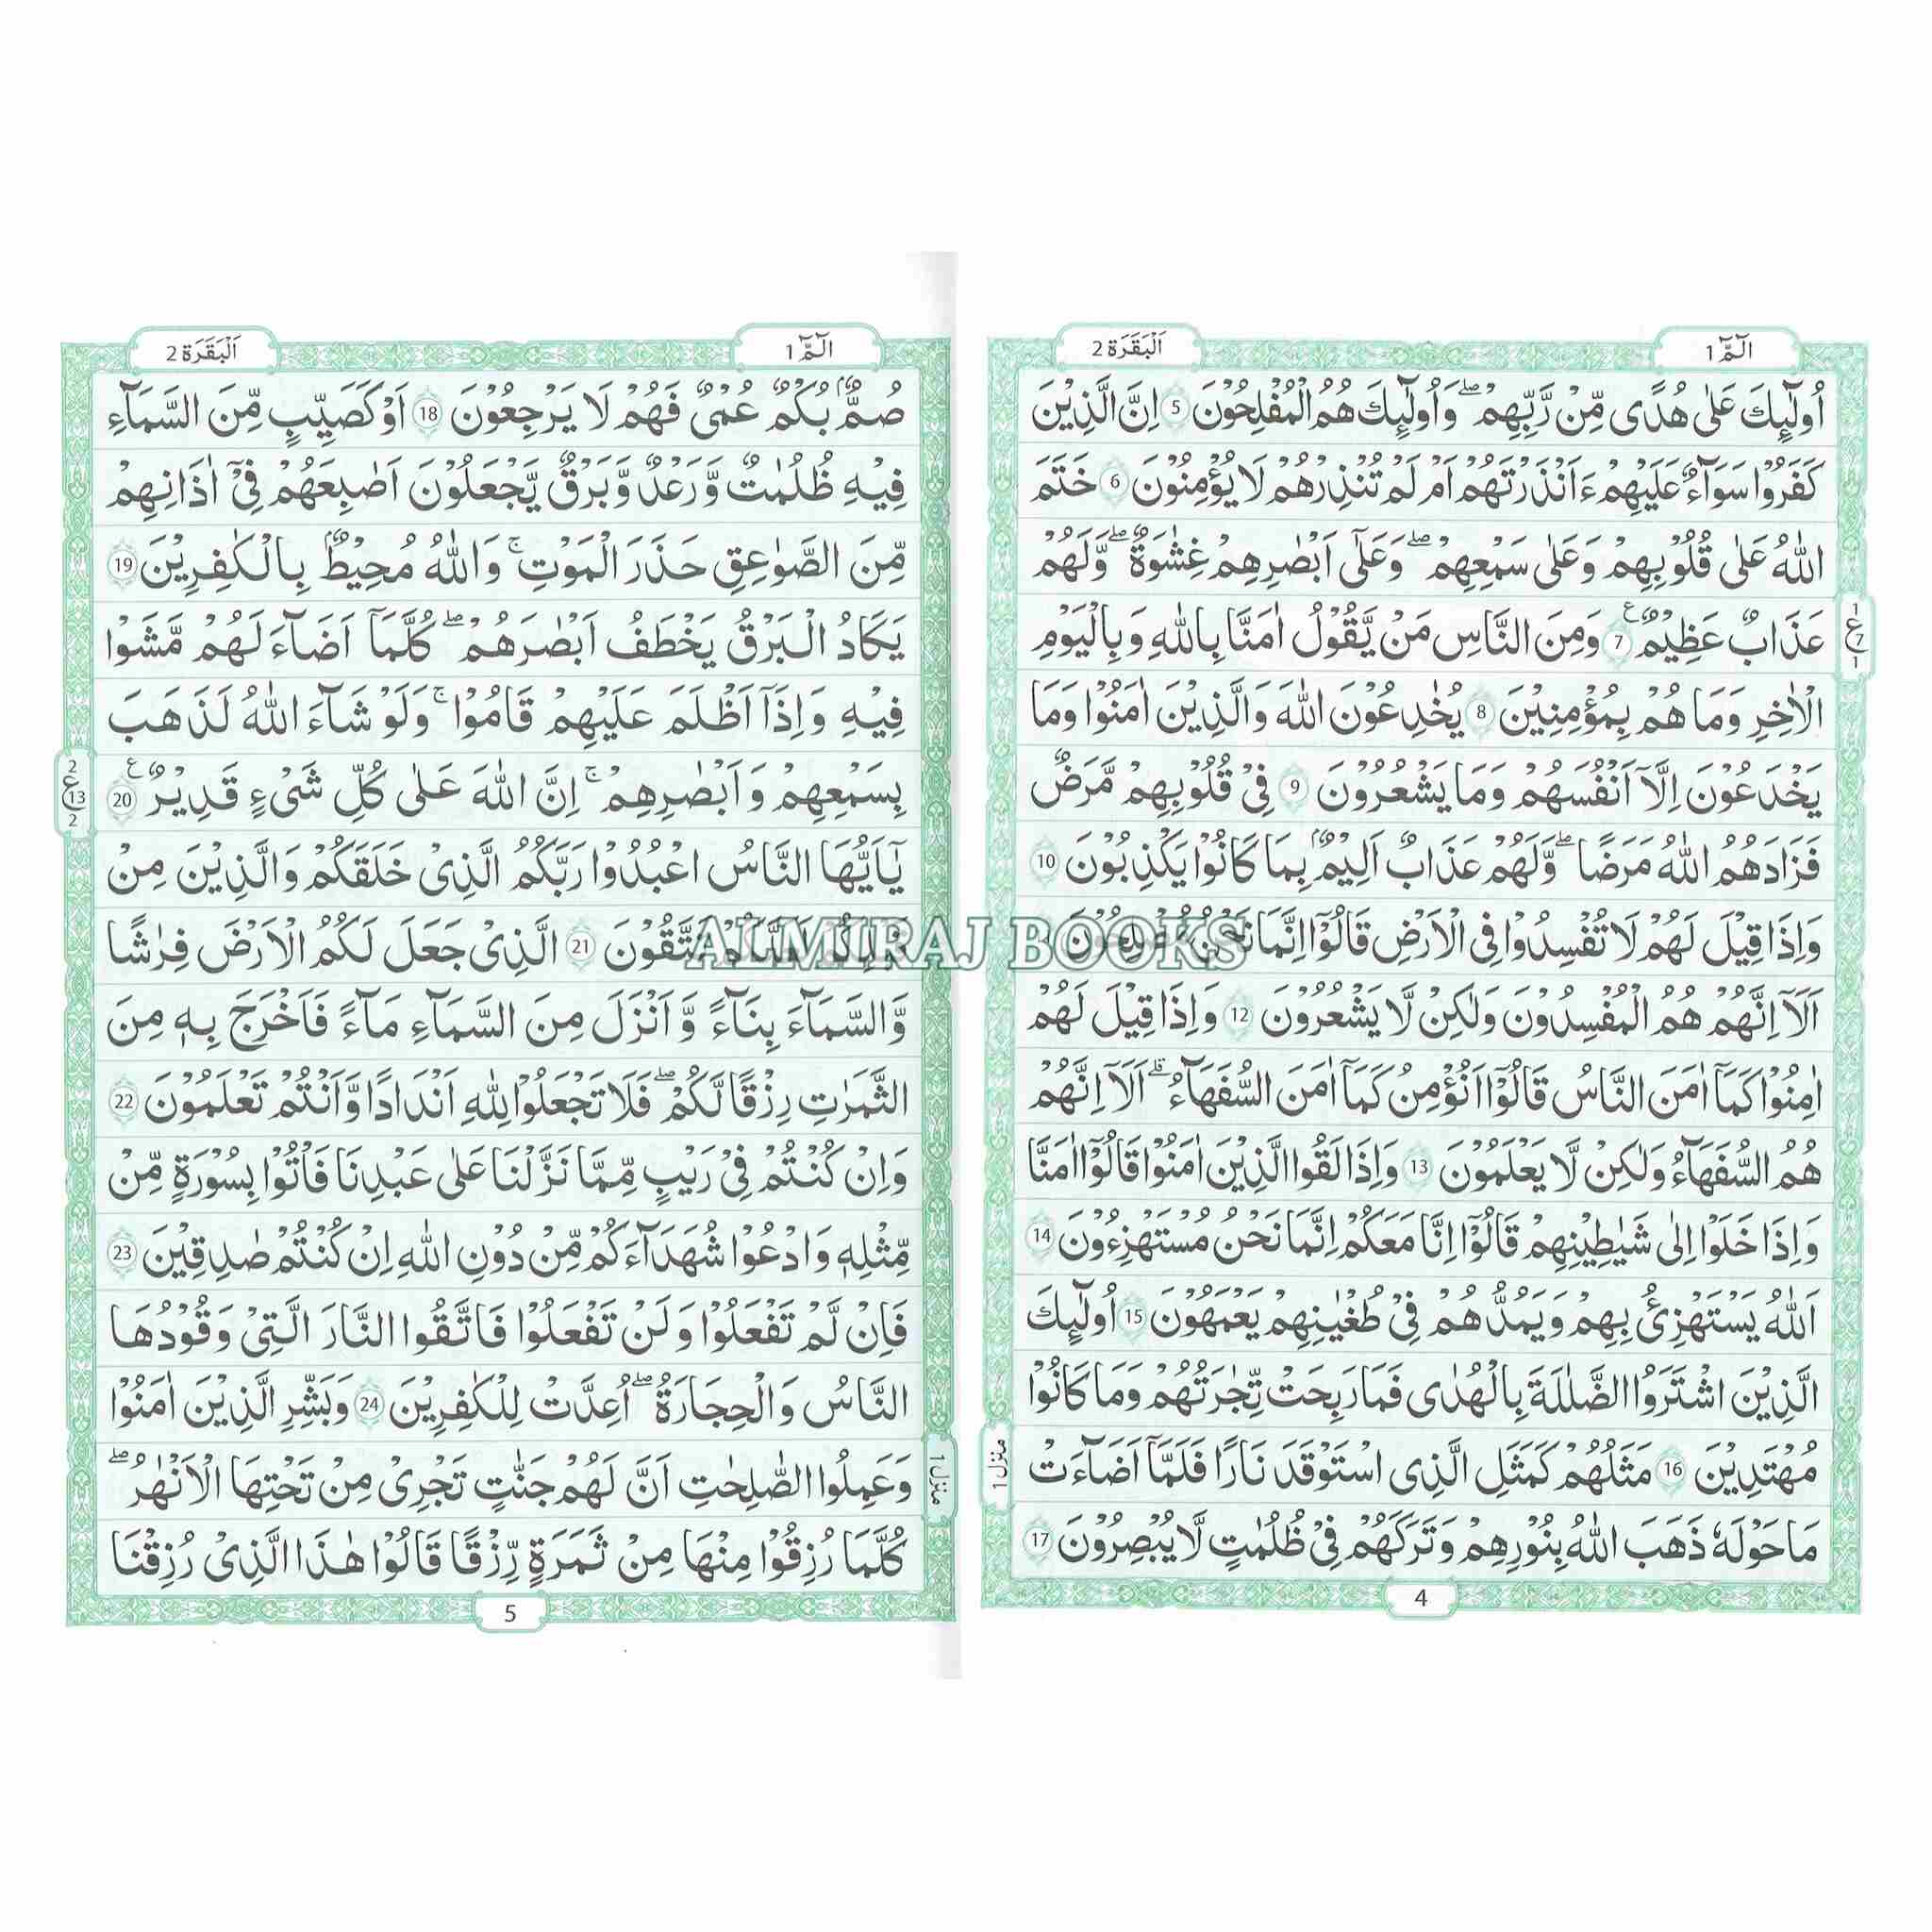 الٓمّٓ 1
اَلْبَقَرَة 2
اُولٰٓئِكَ عَلٰى هُدًى مِّنْ رَّبِّهِمْ ۖ وَاُولٰٓئِكَ هُمُ الْمُفْلِحُوْنَ 5 اِنَّ الَّذِيْنَ
كَفَرُوْا سَوَآءٌ عَلَيْهِمْ ءَاَنْذَرْتَهُمْ اَمْ لَمْ تُنْذِرْهُمْ لَا يُؤْمِنُوْنَ 6 خَتَمَ
اللّٰهُ عَلٰى قُلُوْبِهِمْ وَعَلٰى سَمْعِهِمْ ۖ وَعَلٰٓى اَبْصٰرِهِمْ غِشٰوَةٌ ۖ وَّلَهُمْ
عَذَابٌ عَظِيْمٌ 7 وَمِنَ النَّاسِ مَنْ يَّقُوْلُ اٰمَنَّا بِاللّٰهِ وَبِالْيَوْمِ
الْاٰخِرِ وَمَا هُمْ بِمُؤْمِنِيْنَ 8 يُخٰدِعُوْنَ اللّٰهَ وَالَّذِيْنَ اٰمَنُوْا وَمَا
يَخْدَعُوْنَ اِلَّآ اَنْفُسَهُمْ وَمَا يَشْعُرُوْنَ 9 فِيْ قُلُوْبِهِمْ مَّرَضٌ
فَزَادَهُمُ اللّٰهُ مَرَضًا ۖ وَّلَهُمْ عَذَابٌ اَلِيْمٌ بِمَا كَانُوْا يَكْذِبُوْنَ 10
وَاِذَا قِيْلَ لَهُمْ لَا تُفْسِدُوْا فِى الْاَرْضِ قَالُوْٓا اِنَّمَا نَحْنُ
اَلَآ اِنَّهُمْ هُمُ الْمُفْسِدُوْنَ وَلٰكِنْ لَّا يَشْعُرُوْنَ 12 وَاِذَا قِيْلَ لَهُمْ
اٰمِنُوْا كَمَآ اٰمَنَ النَّاسُ قَالُوْٓا اَنُؤْمِنُ كَمَآ اٰمَنَ السُّفَهَآءُ ۗ اَلَآ اِنَّهُمْ
هُمُ السُّفَهَآءُ وَلٰكِنْ لَّا يَعْلَمُوْنَ 13 وَاِذَا لَقُوا الَّذِيْنَ اٰمَنُوْا قَالُوْٓا اٰمَنَّا
وَاِذَا خَلَوْا اِلٰى شَيٰطِيْنِهِمْ قَالُوْٓا اِنَّا مَعَكُمْ اِنَّمَا نَحْنُ مُسْتَهْزِءُوْنَ 14
اَللّٰهُ يَسْتَهْزِئُ بِهِمْ وَيَمُدُّهُمْ فِيْ طُغْيٰنِهِمْ يَعْمَهُوْنَ 15 اُولٰٓئِكَ
الَّذِيْنَ اشْتَرَوُا الضَّلٰلَةَ بِالْهُدٰى فَمَا رَبِحَتْ تِّجٰرَتُهُمْ وَمَا كَانُوْا
مُهْتَدِيْنَ 16 مَثَلُهُمْ كَمَثَلِ الَّذِى اسْتَوْقَدَ نَارًا فَلَمَّآ اَضَآءَتْ
مَا حَوْلَهٗ ذَهَبَ اللّٰهُ بِنُوْرِهِمْ وَتَرَكَهُمْ فِيْ ظُلُمٰتٍ لَّا يُبْصِرُوْنَ 17
1
ع
7
1
منزل 1
4
الٓمّٓ 1
اَلْبَقَرَة 2
صُمٌّ بُكْمٌ عُمْيٌ فَهُمْ لَا يَرْجِعُوْنَ 18 اَوْ كَصَيِّبٍ مِّنَ السَّمَآءِ
فِيْهِ ظُلُمٰتٌ وَّرَعْدٌ وَّبَرْقٌ يَّجْعَلُوْنَ اَصٰبِعَهُمْ فِيْٓ اٰذَانِهِمْ
مِّنَ الصَّوٰعِقِ حَذَرَ الْمَوْتِ ۚ وَاللّٰهُ مُحِيْطٌ بِالْكٰفِرِيْنَ 19
يَكَادُ الْبَرْقُ يَخْطَفُ اَبْصٰرَهُمْ ۖ كُلَّمَآ اَضَآءَ لَهُمْ مَّشَوْا
فِيْهِ وَاِذَآ اَظْلَمَ عَلَيْهِمْ قَامُوْا ۚ وَلَوْ شَآءَ اللّٰهُ لَذَهَبَ
بِسَمْعِهِمْ وَاَبْصٰرِهِمْ ۚ اِنَّ اللّٰهَ عَلٰى كُلِّ شَيْءٍ قَدِيْرٌ 20
يٰٓاَيُّهَا النَّاسُ اعْبُدُوْا رَبَّكُمُ الَّذِيْ خَلَقَكُمْ وَالَّذِيْنَ مِنْ
قَبْلِكُمْ لَعَلَّكُمْ تَتَّقُوْنَ 21 الَّذِيْ جَعَلَ لَكُمُ الْاَرْضَ فِرٰشًا
وَّالسَّمَآءَ بِنَآءً وَّاَنْزَلَ مِنَ السَّمَآءِ مَآءً فَاَخْرَجَ بِهٖ مِنَ
الثَّمَرٰتِ رِزْقًا لَّكُمْ ۖ فَلَا تَجْعَلُوْا لِلّٰهِ اَنْدَادًا وَّاَنْتُمْ تَعْلَمُوْنَ 22
وَاِنْ كُنْتُمْ فِيْ رَيْبٍ مِّمَّا نَزَّلْنَا عَلٰى عَبْدِنَا فَاْتُوْا بِسُوْرَةٍ مِّنْ
مِّثْلِهٖ وَادْعُوْا شُهَدَآءَكُمْ مِّنْ دُوْنِ اللّٰهِ اِنْ كُنْتُمْ صٰدِقِيْنَ 23
فَاِنْ لَّمْ تَفْعَلُوْا وَلَنْ تَفْعَلُوْا فَاتَّقُوا النَّارَ الَّتِيْ وَقُوْدُهَا
النَّاسُ وَالْحِجَارَةُ ۖ اُعِدَّتْ لِلْكٰفِرِيْنَ 24 وَبَشِّرِ الَّذِيْنَ اٰمَنُوْا
وَعَمِلُوا الصّٰلِحٰتِ اَنَّ لَهُمْ جَنّٰتٍ تَجْرِيْ مِنْ تَحْتِهَا الْاَنْهٰرُ ۖ
كُلَّمَا رُزِقُوْا مِنْهَا مِنْ ثَمَرَةٍ رِّزْقًا قَالُوْا هٰذَا الَّذِيْ رُزِقْنَا
2
ع
13
2
منزل 1
5
ALMIRAJ BOOKS